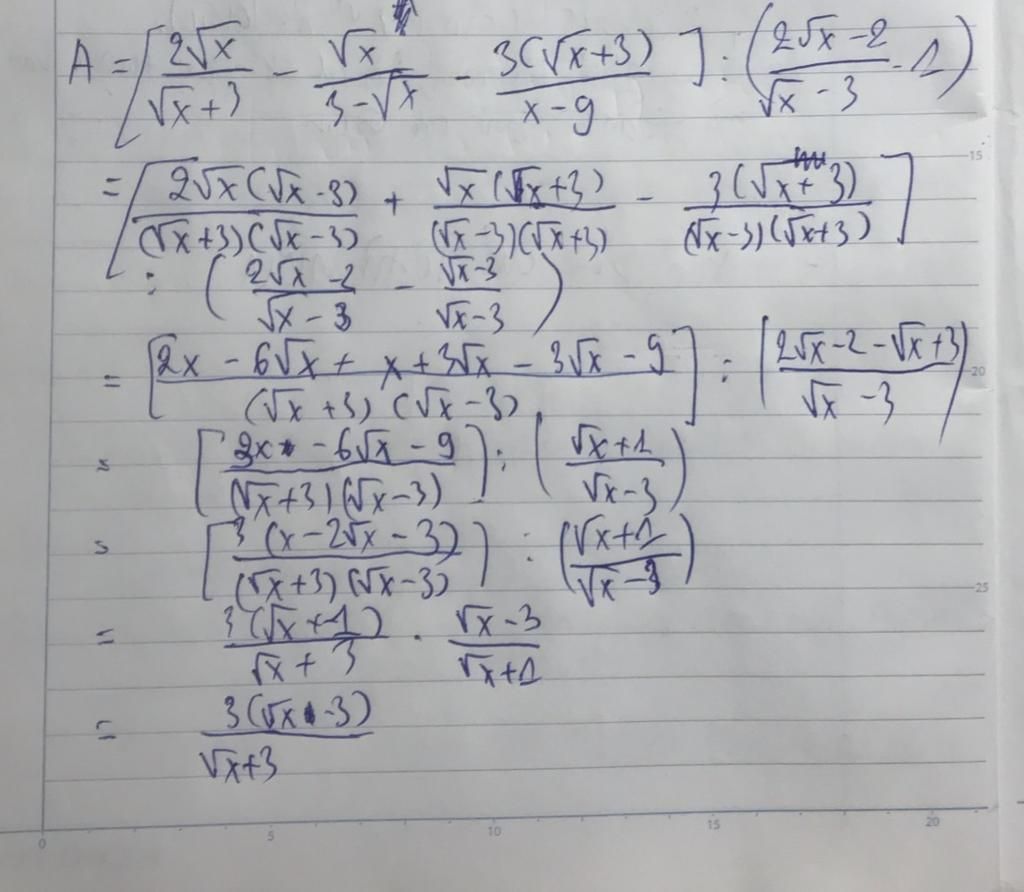 A = [ 2√x / (√x + 3) - √x / (3 - √x) - 3(√x + 3) / (x - 9) ] : ( (2√x - 2) / (√x - 3) - 1 )
= [ 2√x(√x - 3) / (√x + 3)(√x - 3) + √x(√x + 3) / (√x - 3)(√x + 3) - 3(√x + 3) / (√x - 3)(√x + 3) ]
: ( (2√x - 2) / (√x - 3) - (√x - 3) / (√x - 3) )
= [ (2x - 6√x + x + 3√x - 3√x - 9) / (√x + 3)(√x - 3) ] : ( (2√x - 2 - √x + 3) / (√x - 3) )
= [ (3x - 6√x - 9) / (√x + 3)(√x - 3) ] : ( (√x + 1) / (√x - 3) )
= [ 3(x - 2√x - 3) / (√x + 3)(√x - 3) ] : ( (√x + 1) / (√x - 3) )
= 3(√x + 1) / (√x + 3) . (√x - 3) / (√x + 1)
= 3(√x - 3) / (√x + 3)
15
20
25
0 5 10 15 20